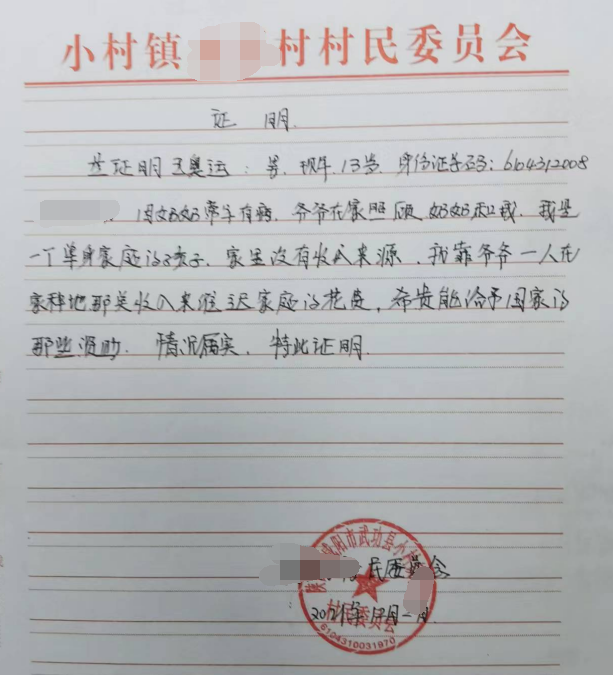 小村镇 村村民委员会
证 明
兹证明王奥运：男，现年13岁，身份证号码：6104312008
因奶奶常年有病，爷爷在家照顾奶奶和我，我是
一个单身家庭的孩子，家里没有收入来源，我靠爷爷一人在
家种地那点收入来维持家庭的花费，希贵能给予国家的
那些资助. 情况属实，特此证明.
咸阳市武功县小村
民委员会
村民委员会
6104310031970